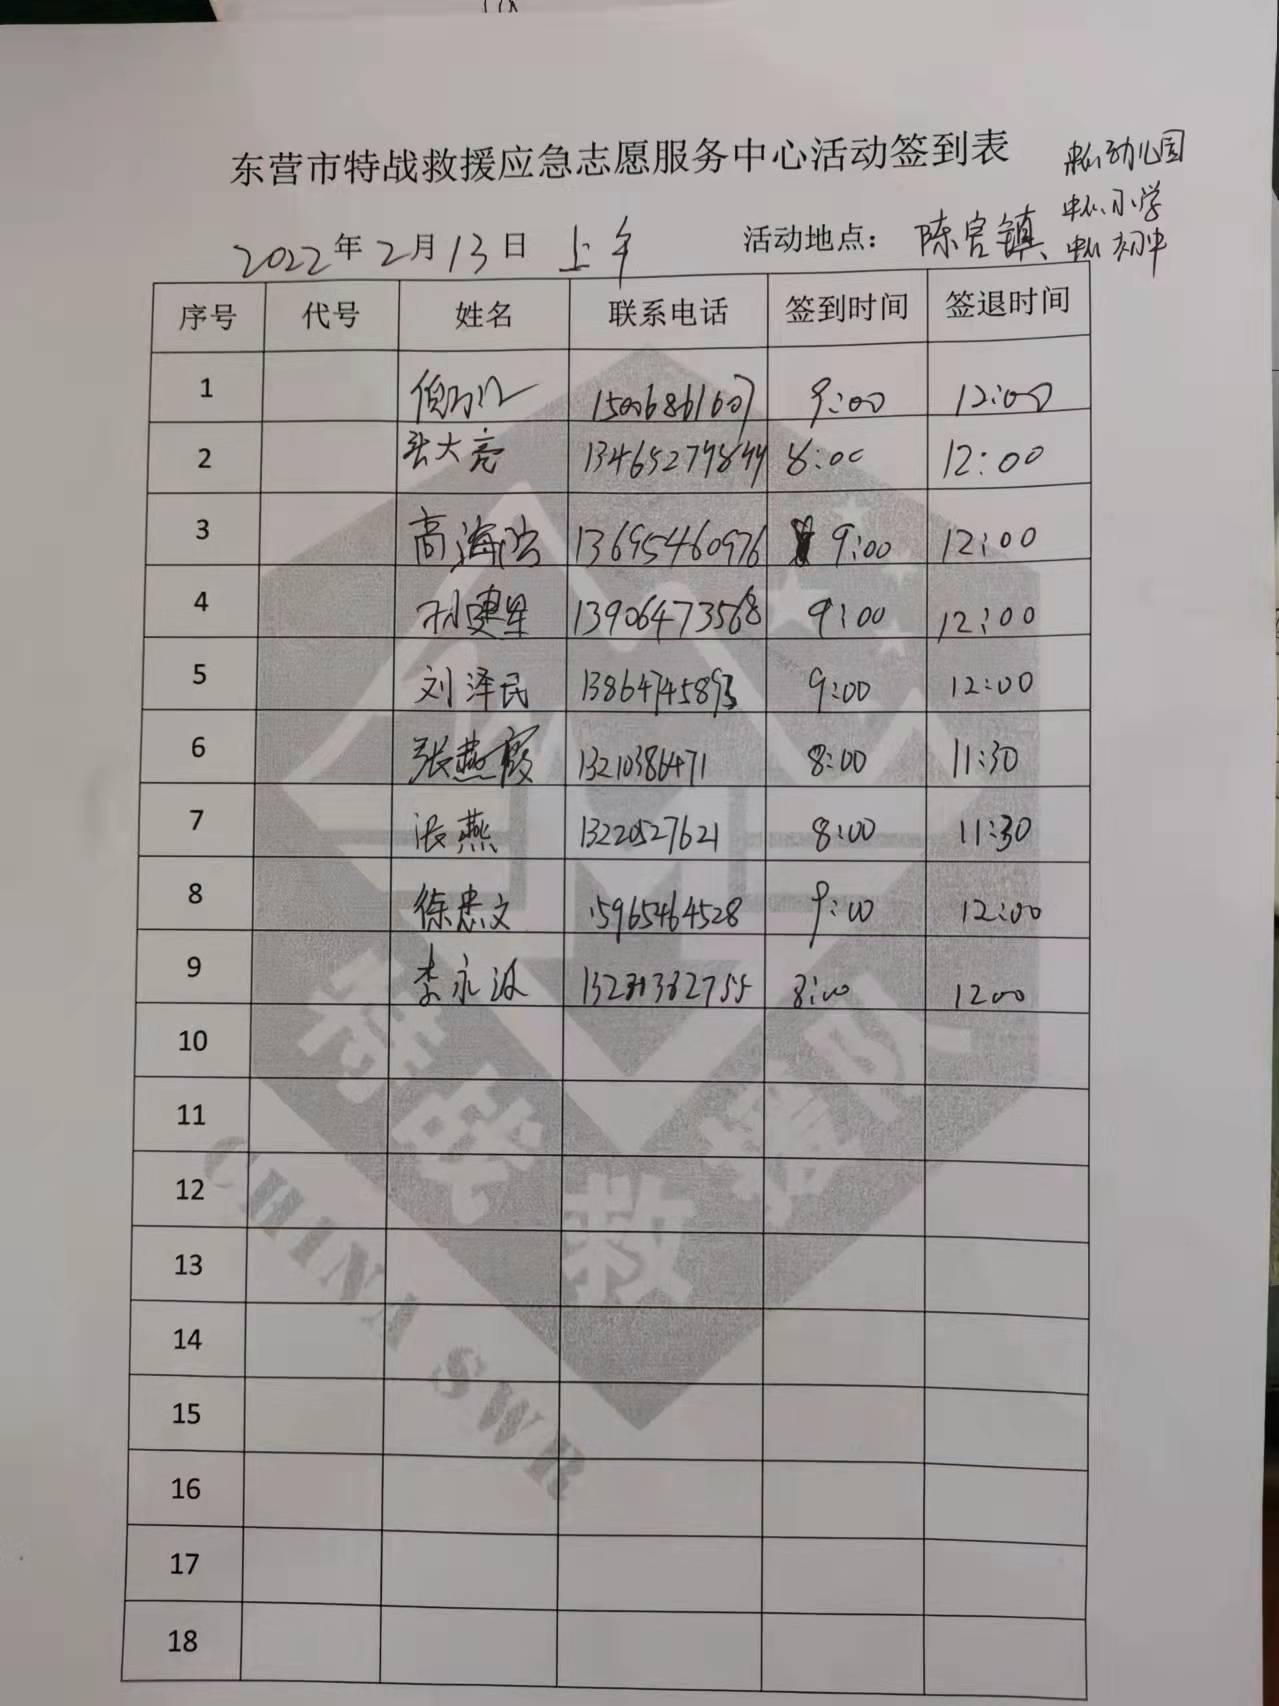 东营市特战救援应急志愿服务中心活动签到表
中心幼儿园
中心小学
2022年2月13日 上午 活动地点：陈官镇、中心初中
序号 代号 姓名 联系电话 签到时间 签退时间
1 15006861607 9:00 12:00
2 张大亮 13465279844 8:00 12:00
3 高海 13695460976 9:00 12:00
4 建星 13906473568 9:00 12:00
5 刘泽民 13864745893 9:00 12:00
6 张燕霞 13210386471 8:00 11:30
7 张燕 13220527621 8:00 11:30
8 徐忠文 15965464528 9:00 12:00
9 李永波 8:00 1200
10
11
12
13
14
15
16
17
18
特战救援队
CHINA SWR